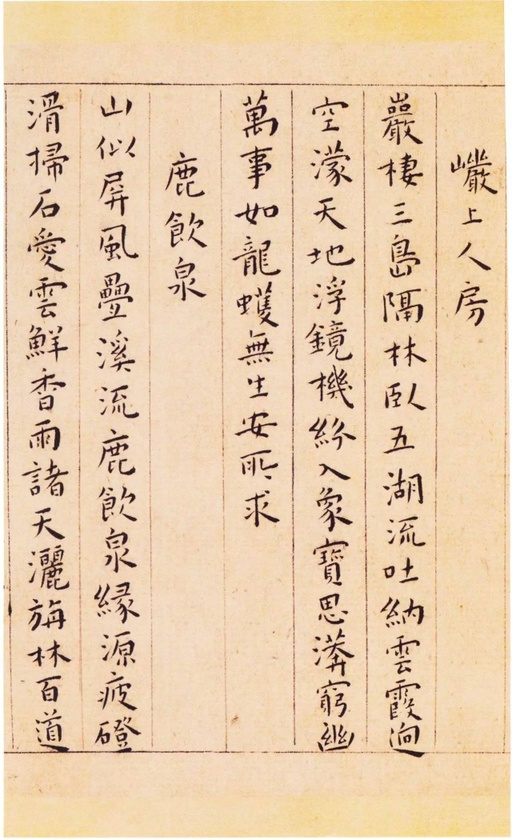 巖上人房
巖棲三島隔林臥五湖流吐納雲霞迥
空濛天地浮鏡機紛入象寶思漭窮幽
萬事如龍蠖無生安所求
鹿飲泉
山似屏風疊溪流鹿飲泉緣源疲磴
滑掃石愛雲鮮香雨諸天灑旃林百道